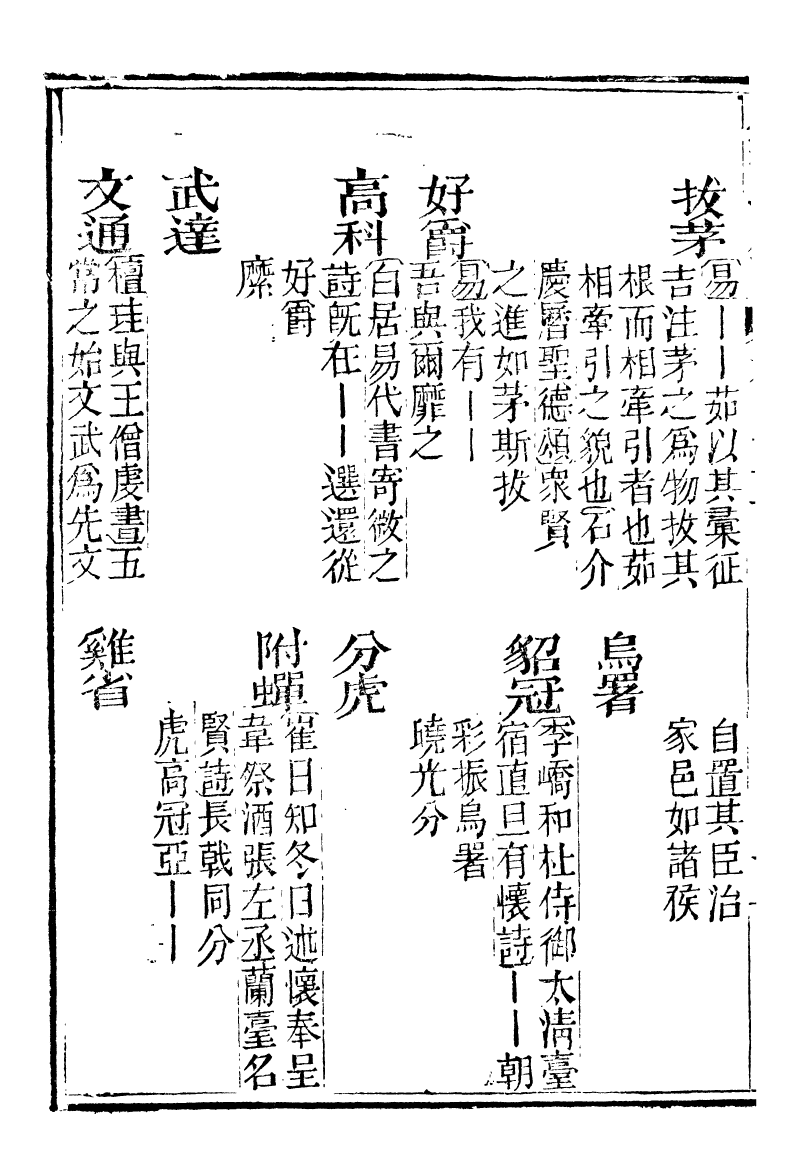 拔茅
易｜｜茹以其彙征
吉注茅之爲物拔其
根而相牽引者也茹
相牽引之貌也石介
慶曆聖德頌衆賢
之進如茅斯拔
好爵
易我有｜｜
吾與爾靡之
高科
白居易代書寄微之
詩既在｜｜選還從
好爵
縻
武達
文通
檀珪與王僧虔書五
常之始文武爲先文
自置其臣治
家邑如諸侯
烏署
貂冠
李嶠和杜侍御太清臺
宿直旦有懷詩｜｜朝
彩振烏署
曉光分
分虎
附蟬
崔日知冬日述懷奉呈
韋祭酒張左丞蘭臺名
賢詩長戟同分
虎高冠亞｜｜
雞省